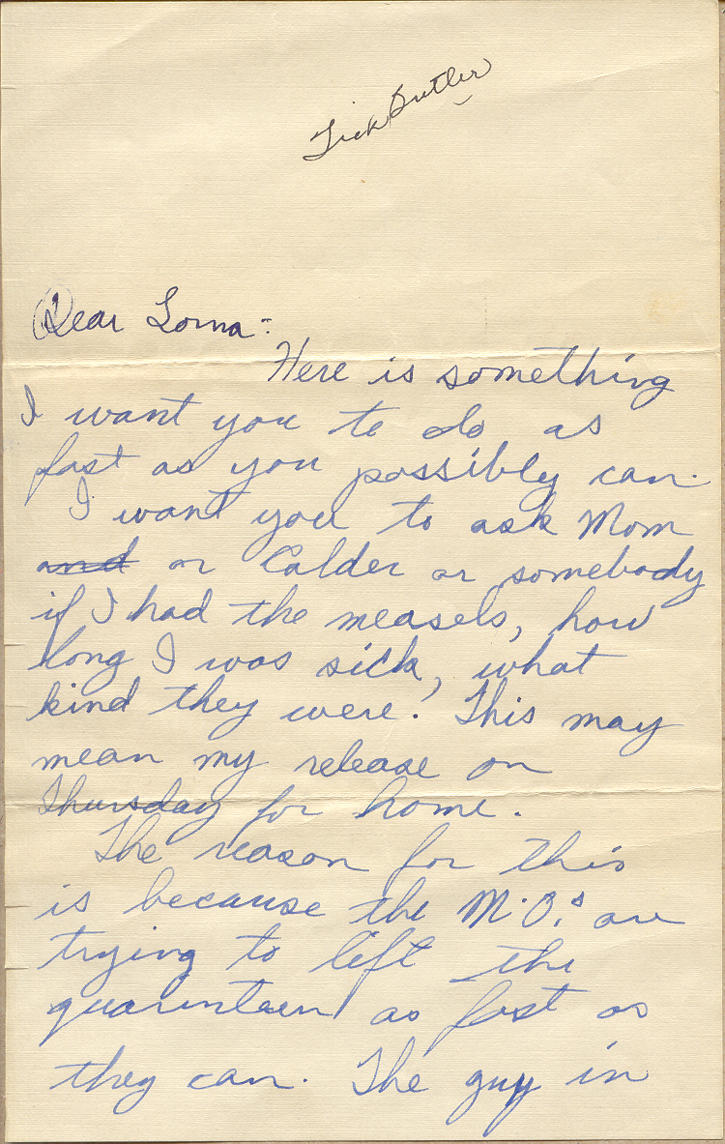 Tick Butler
Dear Lorna:
Here is something
I want you to do as
fast as you possibly can.
I want you to ask Mom
and or Calder or somebody
if I had the measels, how
long I was sick, what
kind they were. This may
mean my release on
Thursday for home.
The reason for this
is because the M.O.s are
trying to lift the
quarinteen as fast as
they can. The guy in